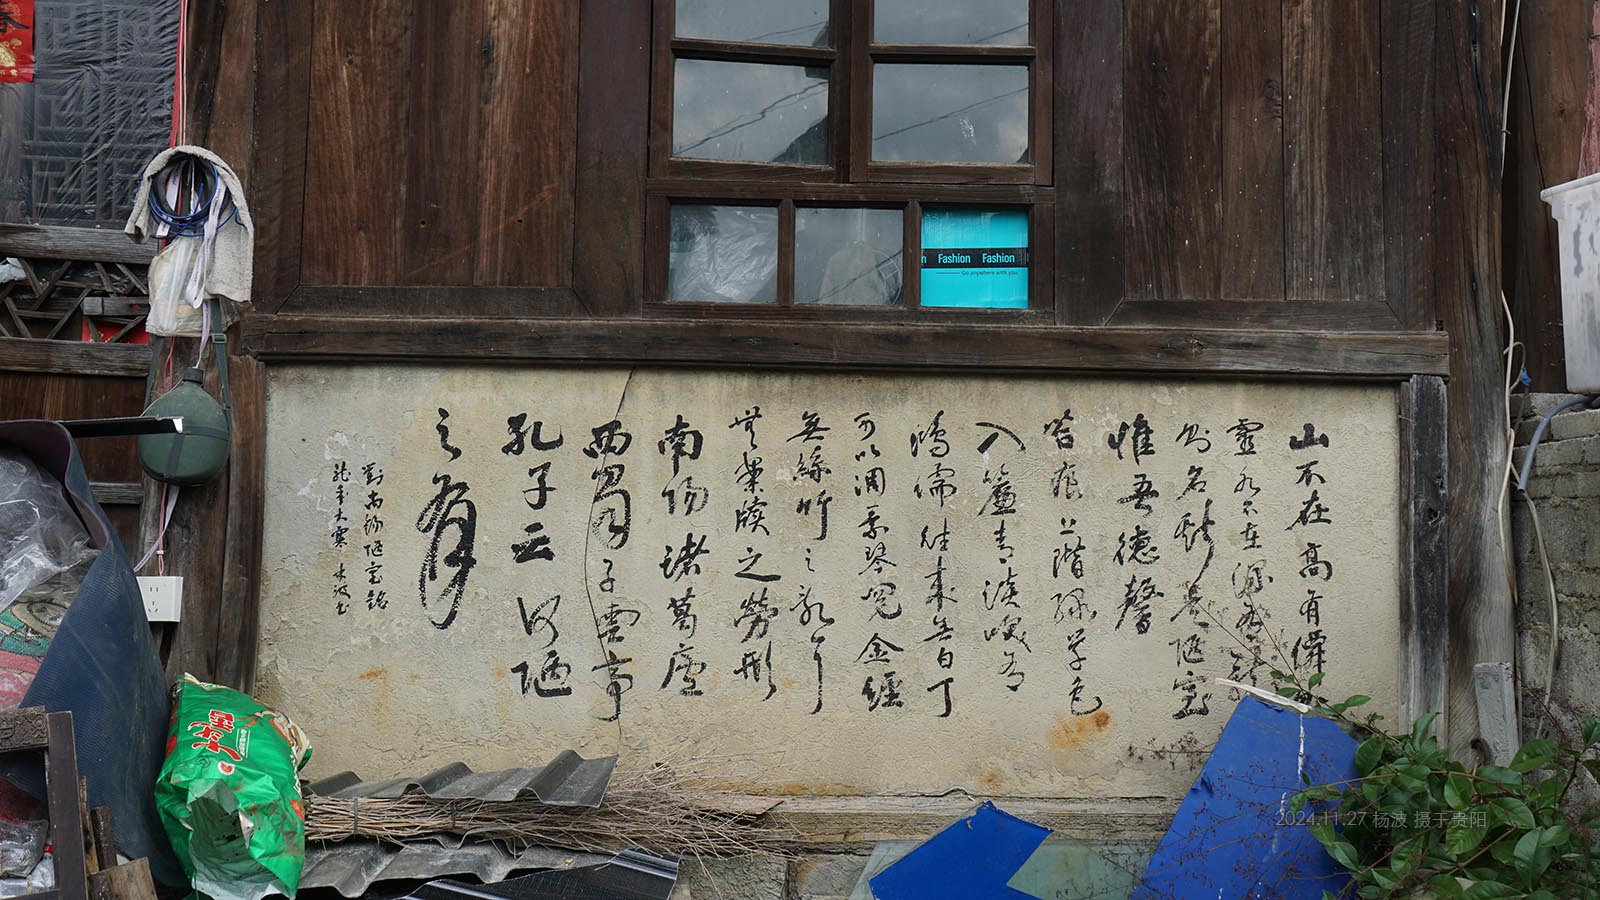 山不在高有僊
靈水不在深有龍
則名斯是陋室
惟吾德馨
苔痕上階綠草色
入簾青談笑有
鴻儒往來無白丁
可以調素琴閱金經
無絲竹之亂耳
無案牘之勞形
南陽諸葛廬
西蜀子雲亭
孔子云何陋
之有
劉禹錫陋室銘
龍年大寒 木波書
Fashion Fashion
Go anywhere with you
2024.11.27 杨波 摄于贵阳